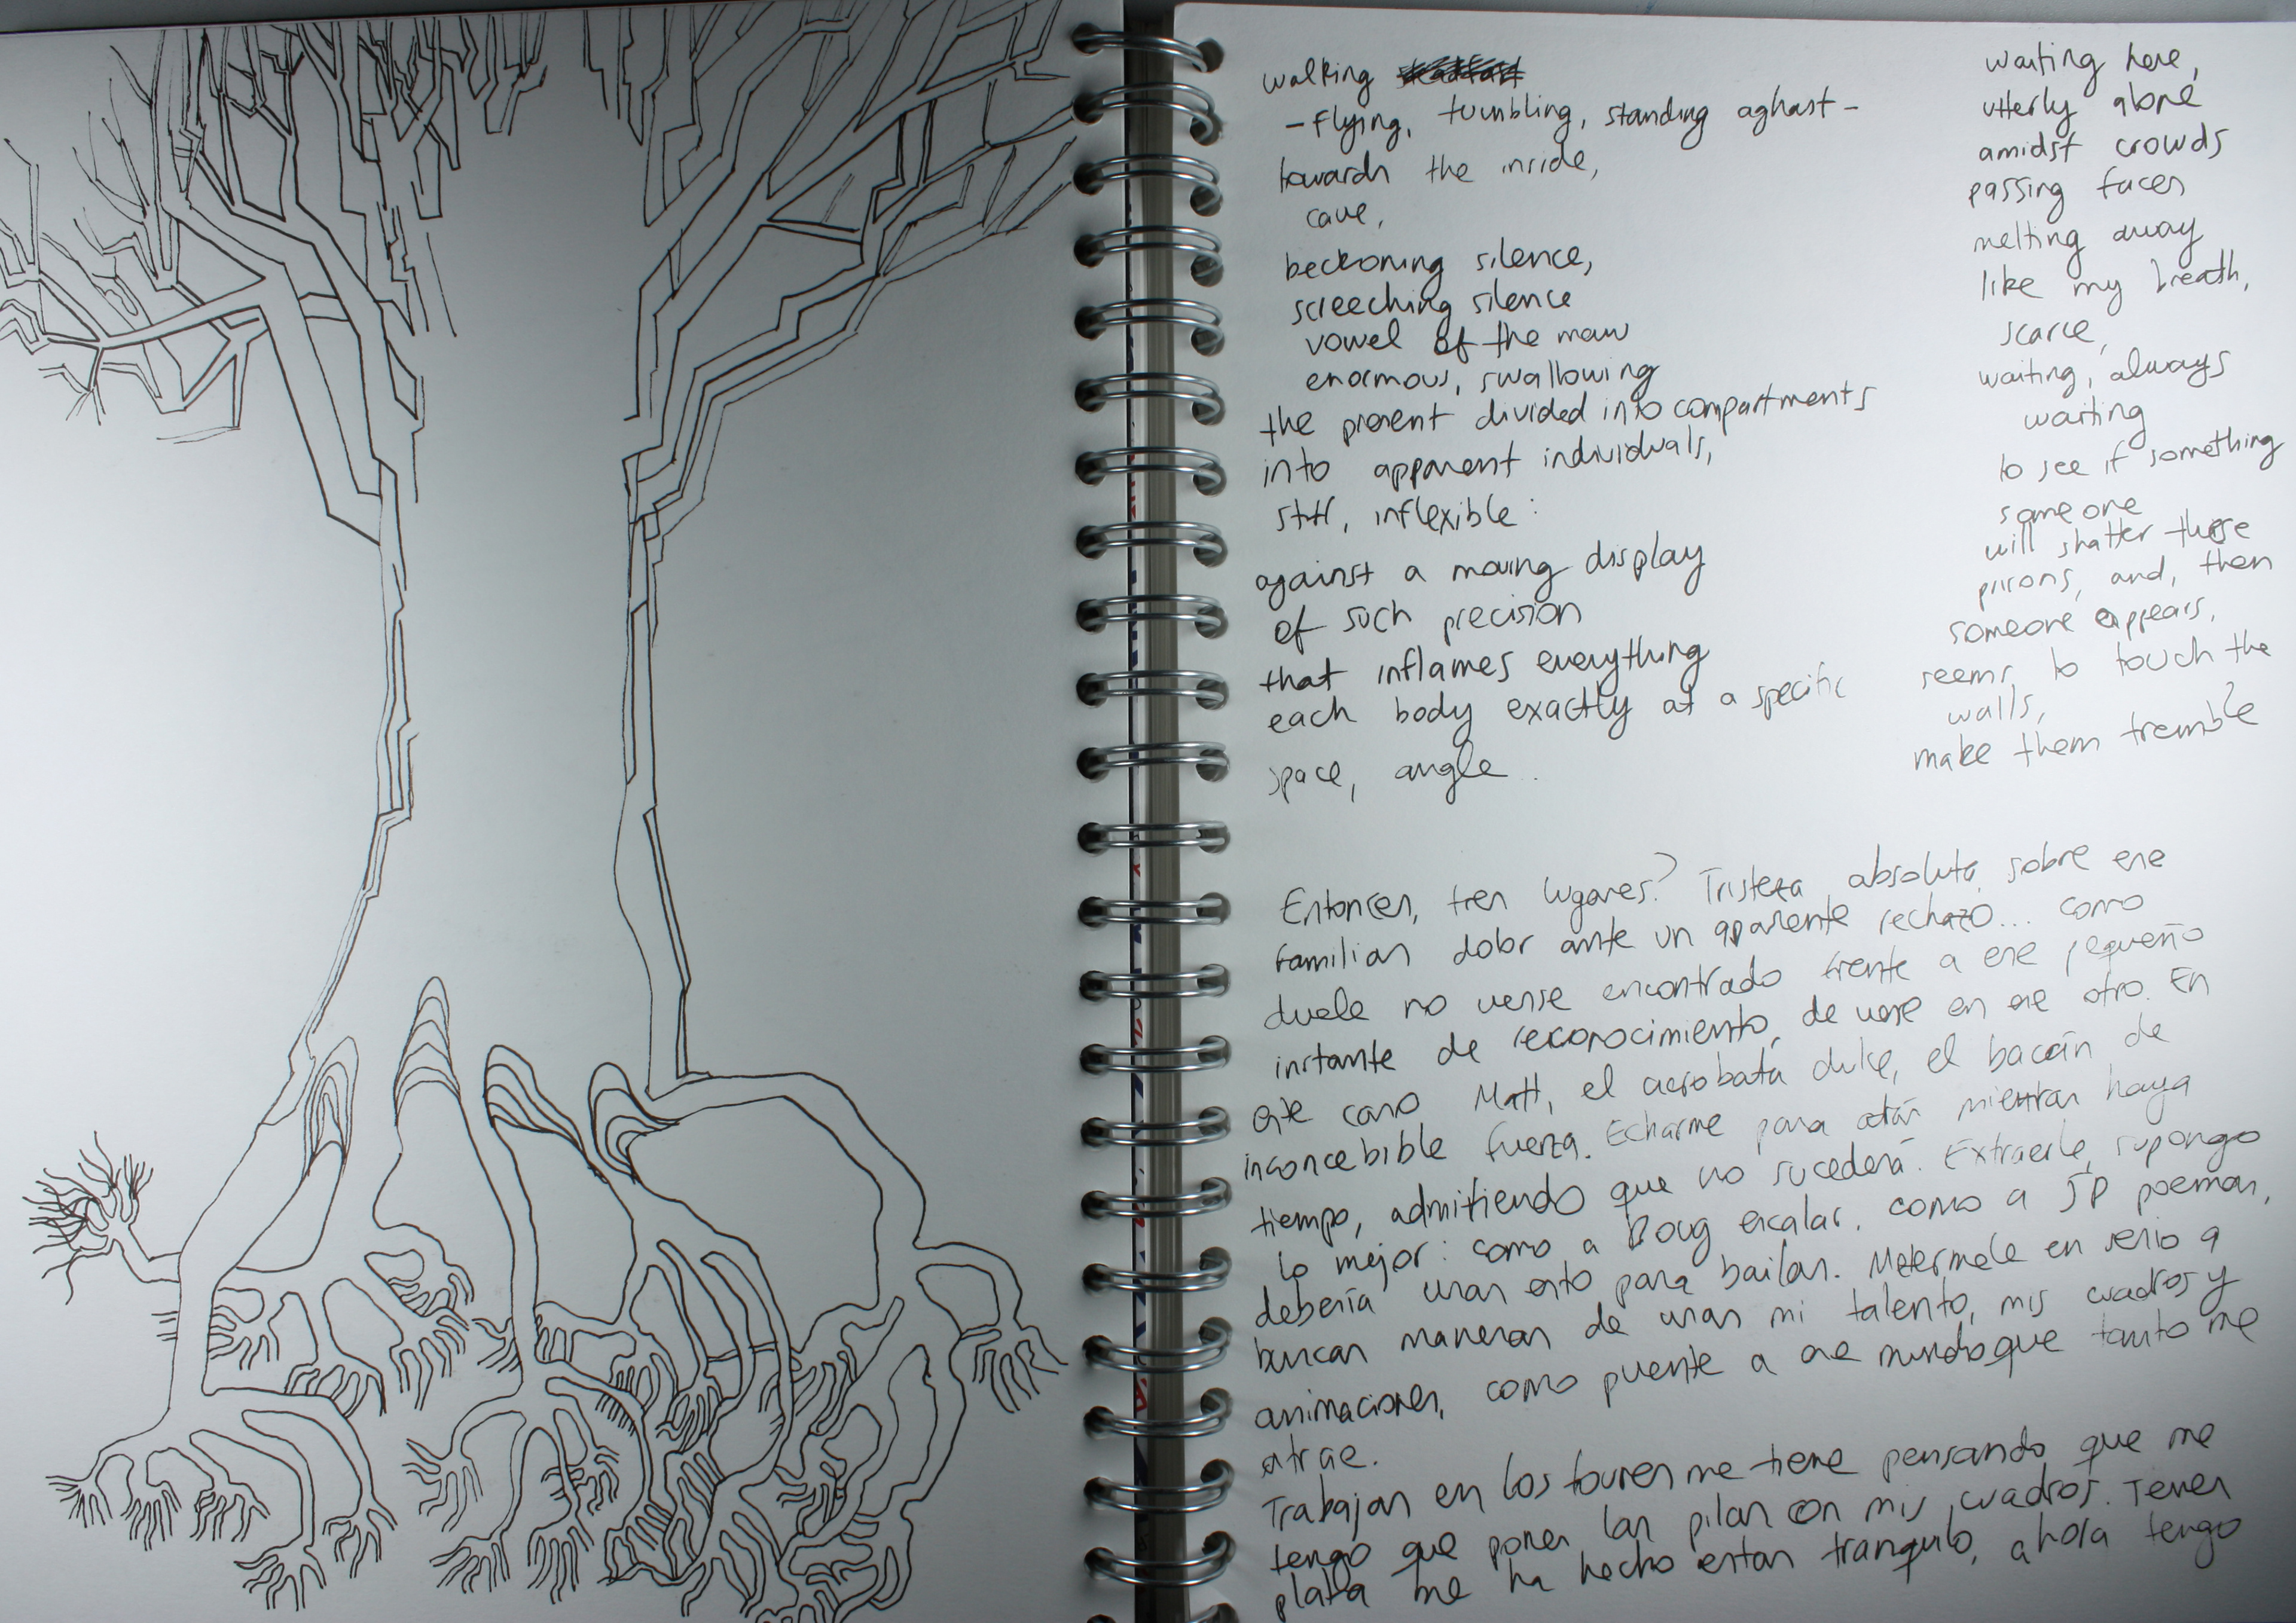 walking
- flying, tumbling, standing aghast -
towards the inside,
cave,
beckoning silence,
screeching silence
vowel of the maw
enormous, swallowing
the present divided into compartments
into apparent individuals,
stiff, inflexible :
against a moving display
of such precision
that inflames everything
each body exactly at a specific
space, angle.
waiting here,
utterly alone
amidst crowds
passing faces
melting away
like my breath,
scarce,
waiting, always
waiting
to see if something
someone
will shatter these
prisons, and, then
someone appears,
seems to touch the
walls,
make them tremble
Entonces, tres lugares? Tristeza absoluta, sobre ese
familiar dolor ante un aparente rechazo... como
duele no verse encontrado frente a ese pequeño
instante de reconocimiento, de verse en ese otro. En
este caso Matt, el acróbata dulce, el bacán de
inconcebible fuerza. Echarme para atrás mientras haya
tiempo, admitiendo que no sucederá. Extraerle, supongo
lo mejor: como a Doug escalar, como a JP poemas,
debería usar esto para bailar. Metermele en serio a
buscar maneras de usar mi talento, mis cuadros y
animaciones, como puente a ese mundo que tanto me
atrae.
Trabajar en los tours me tiene pensando que me
tengo que poner las pilas con mis cuadros. Tener
plata me ha hecho estar tranquilo, ahora tengo